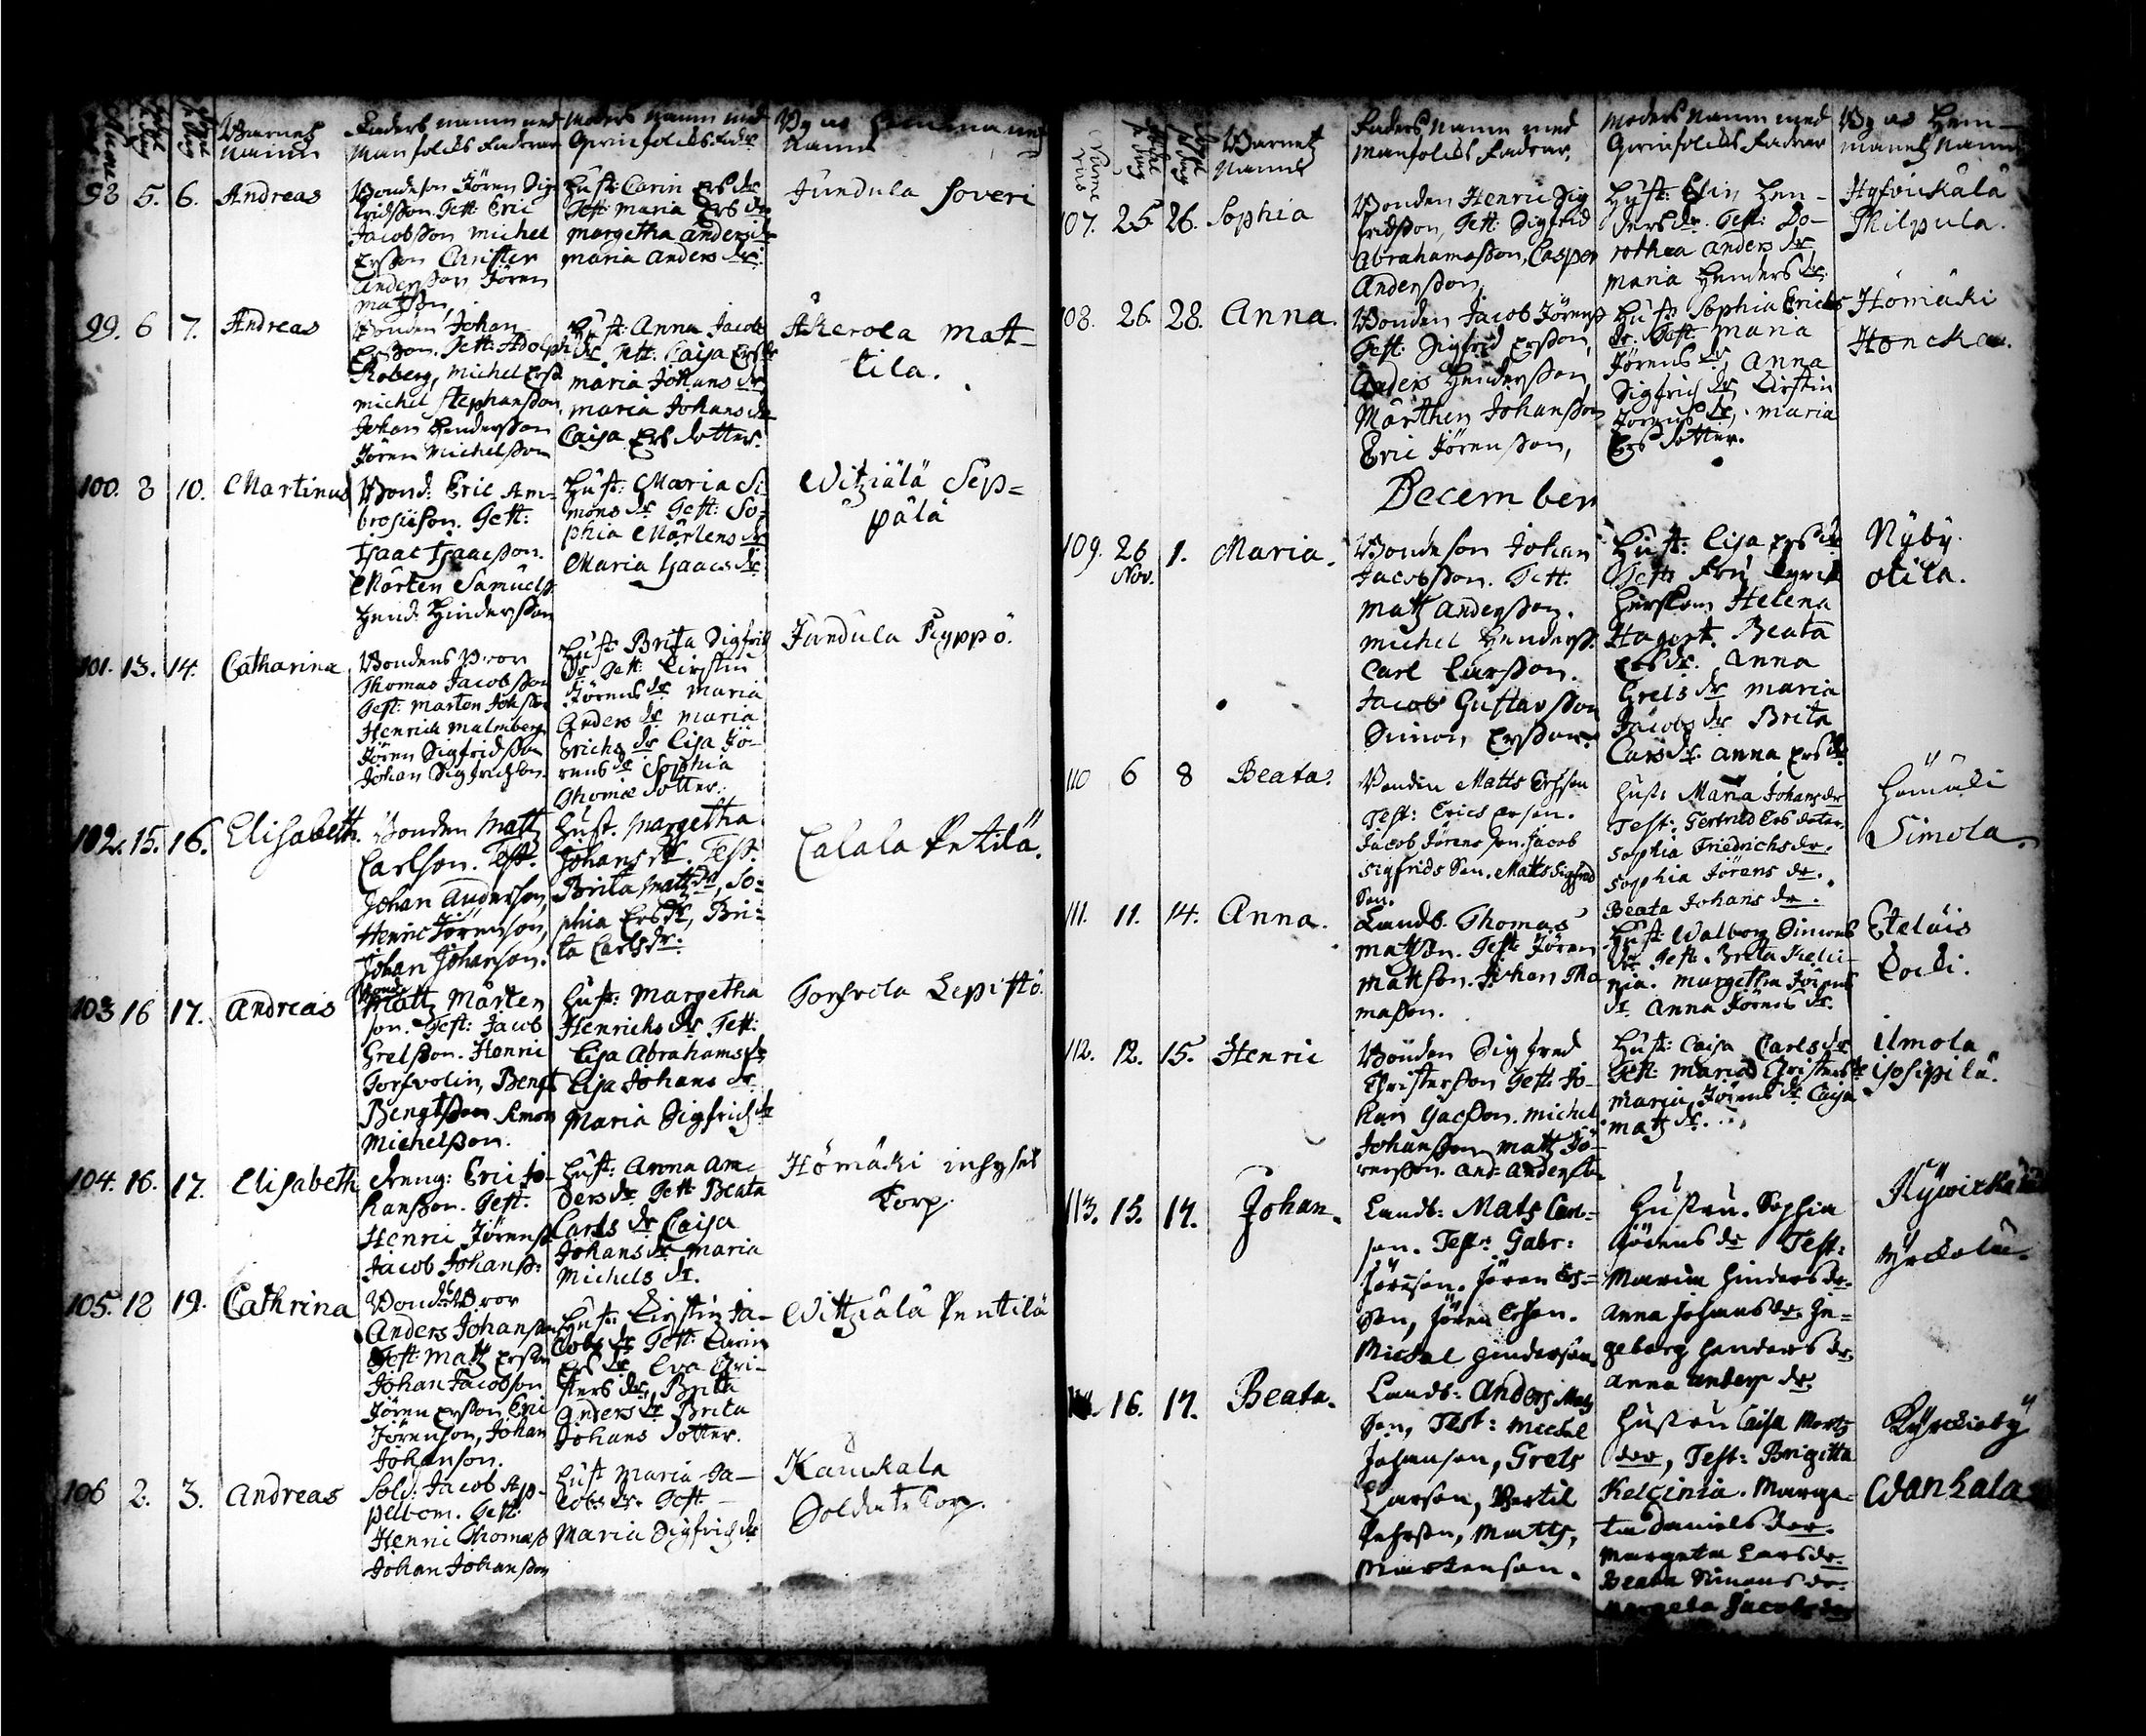 Barnets Namn
Faders namn med Manfolcks Faderar
Moders Namn med Qvinfolcks Fadr
By och Hemmanets Namn
98 5. 6. Andreas
Bondeson Jören Sig
fridsson. Test: Eric
Jacobsson Michel
Ersson Christer
Andersson Jören
Matsson,
Hust: Carin Ers dr
Test: Maria Ers dr
Margetha Anders dr
Maria Anders dr.
Jundula Soveri
99. 6 7. Andreas
Bonden Johan
Ersson. Test: Adolph
Roberg, Michel Erss
Michel Stephansson
Johan Hendersson
Jören Michelsson
Hust: Anna Jacobs
dr Test: Caisa Ers dr
Maria Johans dr
Maria Johans dr
Caisa Ers dotter.
Akerola Mat-
tila.
100. 8 10. Martinus
Bond: Eric Am-
brosiison. Test:
Isaac Isaacsson.
Mårten Samuelss
Hend: Hindersson
Hust: Maria Si-
mons dr Test: So-
phia Mårtens dr
Maria Isaacs dr
Witziälä Sep=
pälä
101. 13. 14. Catharina
Bondens Bror
Thomas Jacobsson
Test: Marten Johsson
Henrich Malmberg
Jören Sigfridsson
Johan Sigfridsson
Hust: Brita Sigfrids
dr Test: Cirstin
Jörens dr Maria
Anders dr Maria
Erichs dr Lisa Jö-
rens dr Sophia
Thomæ dotter.
Jundula Pyppö.
102. 15. 16. Elisabeth.
Bonden Matz
Carlson. Test.
Johan Anderson,
Henric Jörenson,
Johan Johanson.
Hust. Margetha
Johans dr. Test.
Brita Matz dr, So=
phia Ers dr, Bri=
ta Carls dr.
Calala Pentilä.
103 16 17. Andreas
Bond:
Matz Mårten
son. Test: Jacob
Grelsson. Henric
Torsvolin, Bengt
Bengtsson Simon
Michelsson.
Hust: Margetha
Henrichs dr. Test:
Lisa Abrahams dr
Lisa Johans dr
Maria Sigfrids dr
Torsvola Lepistö.
104. 16. 17. Elisabeth
dreng: Eric Jo-
hansson. Test.
Henric Jörenss
Jacob Johanss:
Hust: Anna An-
ders dr Test: Beata
Carls dr Caisa
Johans dr Maria
Michels dr.
Hömäki inhyses
Torp.
105. 18 19. Cathrina
Bondens Bror
Anders Johansson
Test: Matz Ersson
Johan Jacobson
Jören Ersson Eric
Jörenson, Johan
Johanson.
Hust: Cirstin Ja-
cobs dr Test: Carin
Ers dr Eva Chri-
sters dr, Brita
Anders dr Brita
Johans dotter.
Wittziälä Pentilä
106 2. 3. Andreas
Sold: Jacob Ap-
pelbom. Test:
Henric Thomass
Johan Johansson
Hust Maria Ja-
cobs dr. Test:
Maria Sigfrids dr
Kauckala
Soldate Torp.
Barnets Namn
Faders Namn med Manfolcks Fadrar.
Moders Namn med Qvinfolcks Fadrar
By och Hem-
manets Namn
107. 25 26. Sophia
Bonden Henric Sig
fridsson, Test: Sigfrid
Abrahamsson, Casper
Andersson,
Hust: Elin Hen-
ders dr. Test: Do-
rothea Anders dr
Maria Henders dr.
Hyfvickälä
Philpula.
108. 26. 28. Anna.
Bonden Jacob Jörenss
Test: Sigfrid Ersson,
Anders Hendersson,
Mårthen Johansson
Eric Jörensson,
Hust: Sophia Erichs
dr. Test: Maria
Jörens dr, Anna
Sigfrids dr, Cirstin
Jörens dr, Maria
Ers dotter.
Hömäki
Honcka.
December
109. 26 Nov. 1. Maria.
Bondeson Johan
Jacobsson. Test.
Matz Andersson.
Michel Henderss.
Carl Larsson.
Jacob Gustavsson
Simon Ersson.
Hust: Lisa Ers dr
Test: Fru
Helena
Beata
Ers dr. Anna
Grels dr Maria
Jacobs dr Brita
Cars dr. Anna Ers dr
Nÿbÿ.
Otila.
110 6 8 Beata.
Bonden Matts Erssen
Test: Erics ersen.
Jacob Jörens Son. Jacob
Sigfrids Son. Matts Sigfred
Son.
Hust: Maria Johans dr
Test: Gertrud Ers doter.
Sophia Friedrichs dr.
Sophia Jörens dr.
Beata Johans dr.
Hömäki
Simola.
111. 11. 14. Anna.
Landb. Thomas
Matsson. Test: Jören
Matsson. Johan Tho
masson.
Hust: Walborg Simons
dr Test. Brita Kelci-
nia. Margetha Jörens
dr Anna Jörens dr.
Eteläis
Cocki.
112. 12. 15. Henric
Bonden Sigfred
Christerson Test: Jo-
han Isacsson. Michel
Johansson Matz Jö-
rensson. And: Anderson
Hust: Caisa Carls dr
Test: Maria Christers dr
Maria Jörens dr Caisa
Matz dr.
Ilmola
Isosipilä.
113. 15. 17. Johan.
Landb: Mats Carl=
son. Test: Gabr:
Jörenson. Jören Ers=
son, Jören Ersson.
Michel Hinderson.
Hustru. Sophia
Jörens dr Test:
Maria Hinders dr.
Anna Johans dr. In=
geborg Henders dr.
Anna Anders dr.
16. 17. Beata.
Landb: Anders Matz
Son, Test: Michel
Johanson, Grels
Larson, Bertil
Pehrson, Matts,
Martenson.
Hustru Caisa Mortz
der, Test: Brigitta
Kelcinia. Marga-
ta Daniels der.
Margeta Lars dr.
Beata Simons dr.
Margeta Jacobs dr
Kyrckioby
Wanhala